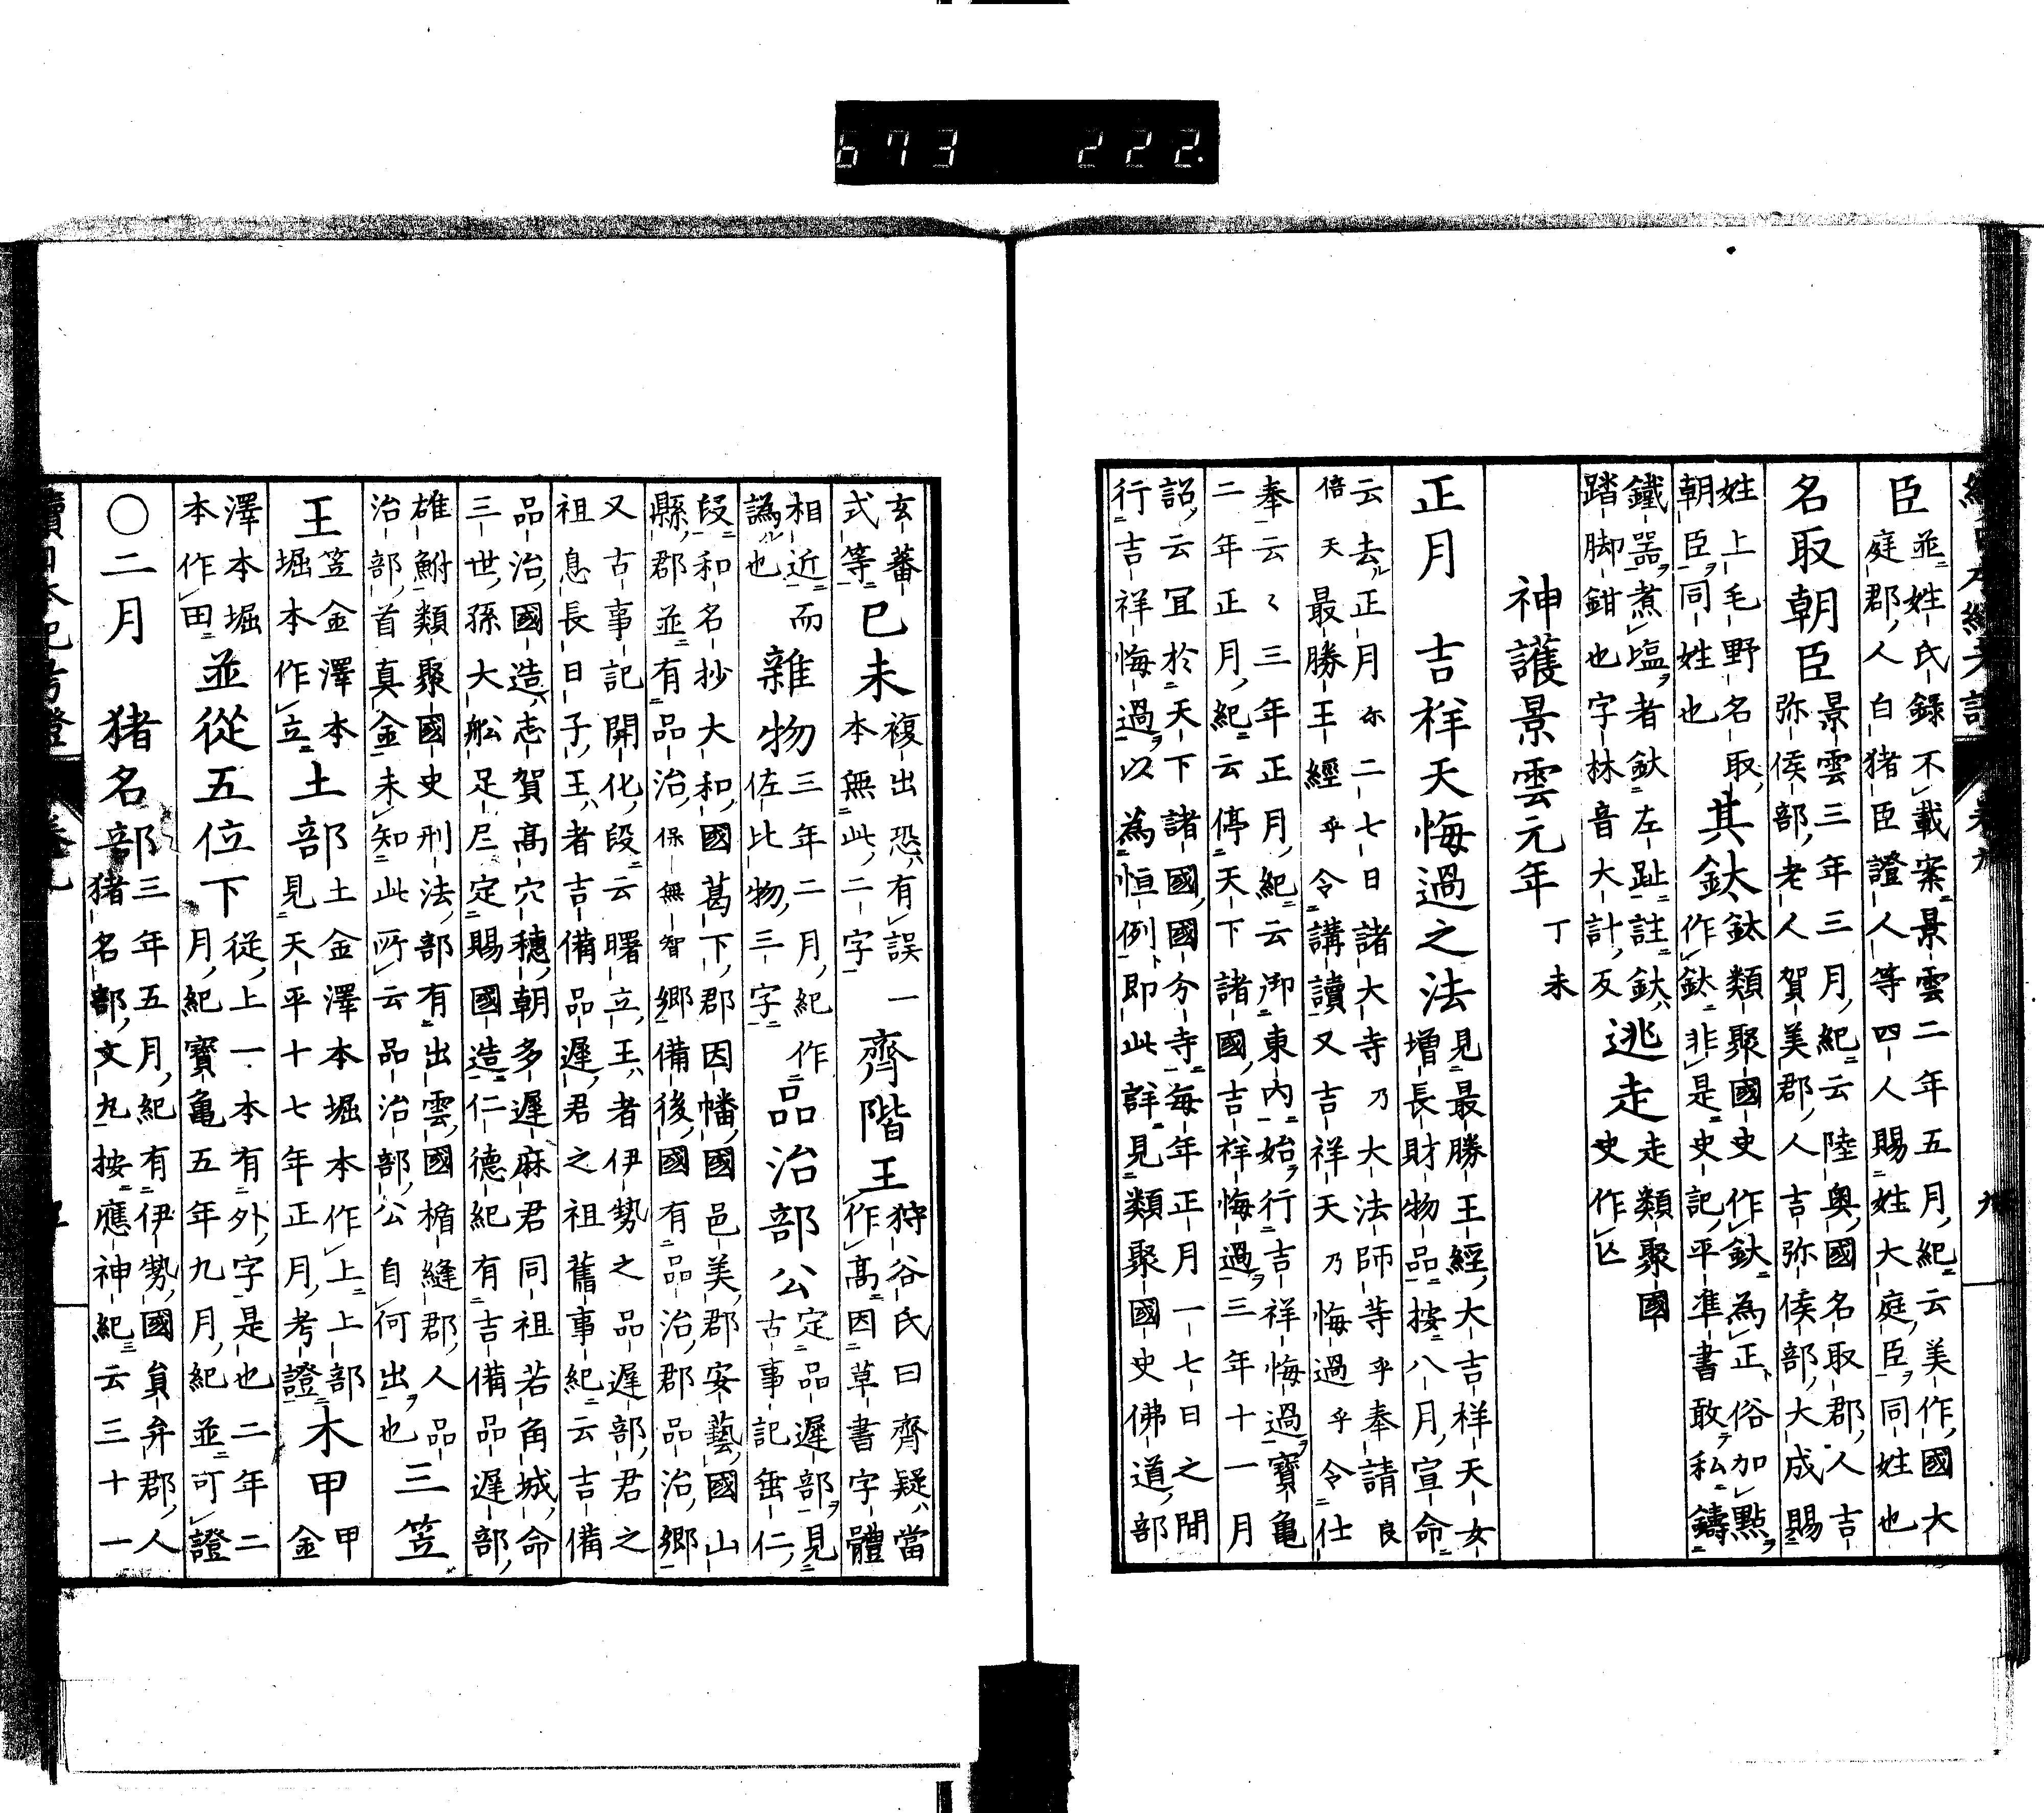 673 222.
臣
並姓氏録不載案景雲二年五月紀云美作國大
庭郡人白猪臣證人等四人賜姓大庭臣同姓也
名取朝臣
景雲三年三月紀云陸奥國名取郡人吉
弥侯部老人賀美郡人吉弥侯部大成賜
姓上毛野名取
朝臣同姓也
其釱
釱類聚國史作釱為正俗加點
作釱非是史記平凖書敢私鑄
鐵噐煮塩者釱左趾註釱
踏脚鉗也字林音大計反
逃走
走類聚國
史作亾
神護景雲元年
丁未
正月 吉祥天悔過之法
見最勝王經大吉祥天女
増長財物品按八月宣命
云去ル正月尓二七日諸大寺乃大法師等乎奉請良
倍天最勝王經乎令講讀又吉祥天乃悔過乎令仕
奉云〻三年正月紀云御東内始行吉祥悔過寳亀
二年正月紀云停天下諸國吉祥悔過三年十一月
詔云冝於天下諸國國分寺毎年正月一七日之間
行吉祥悔過以為恒例即此詳見類聚國史佛道部
玄蕃
式等
已未
複出恐有誤一
本無此二字
齊階王
狩谷氏曰齊疑當
作高因草書字體
相近而
譌也
雜物
三年二月紀作
佐比物三字
品治部公
定品遲部見
古事記垂仁
段和名抄大和國葛下郡因幡國邑美郡安藝國山
縣郡並有品治保無智郷備後國有品治郡品治郷
又古事記開化段云曙立王者伊勢之品遲部君之
祖息長日子王者吉備品遲君之祖舊事紀云吉備
品治國造志賀高穴穗朝多遲麻君同祖若角城命
三世孫大舩足尼定賜國造仁德紀有吉備品遲部
雄鮒類聚國史刑法部有出雲國楯縫郡人品
治部首真金未知此所云品治部公自何出也
三笠
王
笠金澤本
堀本作立
土部
土金澤本堀本作上上部
見天平十七年正月考證
木甲
甲
金
澤本堀
本作田
並從五位下
從上一本有外字是也二年二
月紀寳亀五年九月紀並可證
〇二月 猪名部
三年五月紀有伊勢國貟弁郡人
猪名部文九按應神紀云三十一